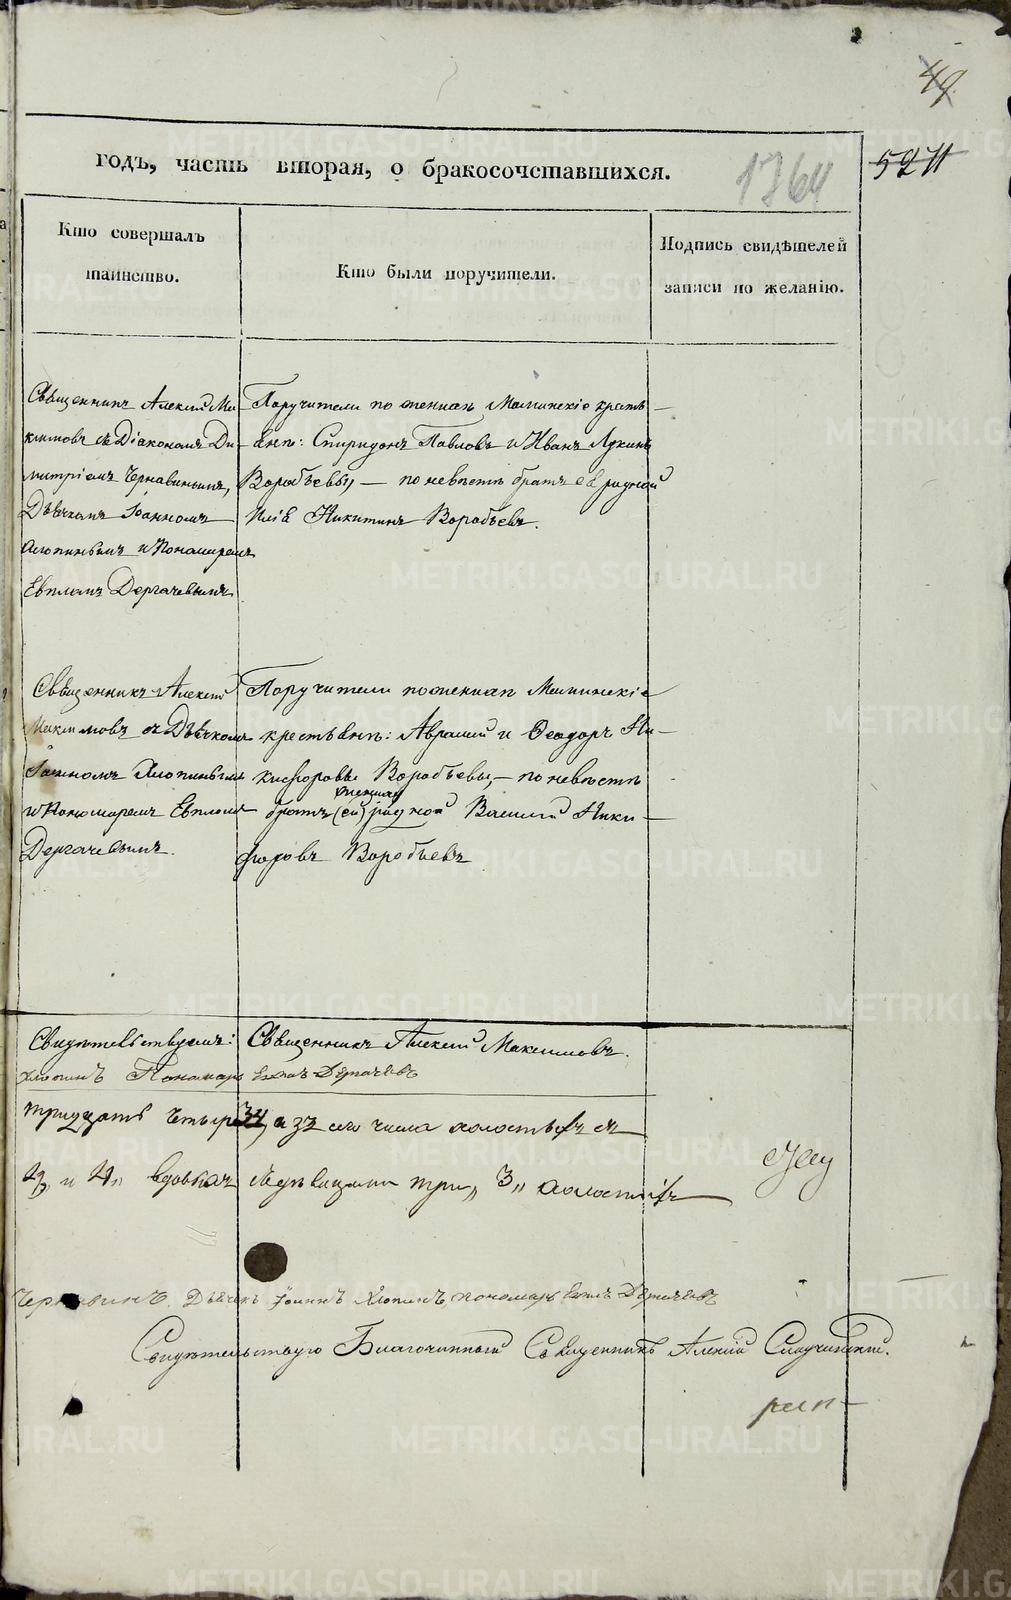 49.
годъ, часть вторая, о бракосочетавшихся.
1764
5271
Кто совершалъ таинство.
Кто были поручители.
Подпись свидѣтелей записи по желанію.
Священникъ Алексій Ма-
ксимовъ съ Діакономъ Ди-
митріемъ Чернавинымъ,
Дьячкомъ Іоанномъ
Хлопинымъ и Пономаремъ
Евпломъ Дергачевымъ
Поручители по женихѣ Маминскіе кресть-
янѣ: Спиридонъ Павловъ и Иванъ Лукинъ
Воробьевы, — по невѣстѣ братъ ея родной
Илія Никитинъ Воробьевъ.
Священникъ Алексій
Максимовъ съ Дьячкомъ
Іоанномъ Хлопинымъ
и Пономаремъ Евпломъ
Дергачевымъ.
Поручители по женихѣ Маминскіе
крестьянѣ: Авраамій и Ѳеодоръ Ни-
кифоровы Воробьевы, — по невѣстѣ
братъ (ей) родной Василій Ники-
форовъ Воробьевъ
Свидѣтельствуемъ: Священникъ Алексій Максимовъ.
Хлопинъ Пономарь Евплъ Дергачевъ
тридцать четыре 34, изъ сего числа холостыхъ съ
и 4, вдовыхъ съ дѣвицами три, 3, холостыхъ
Чернавинъ Дьячекъ Іоаннъ Хлопинъ, пономарь Евплъ Дергачевъ
Свидѣтельствую Благочинный Священникъ Алексій